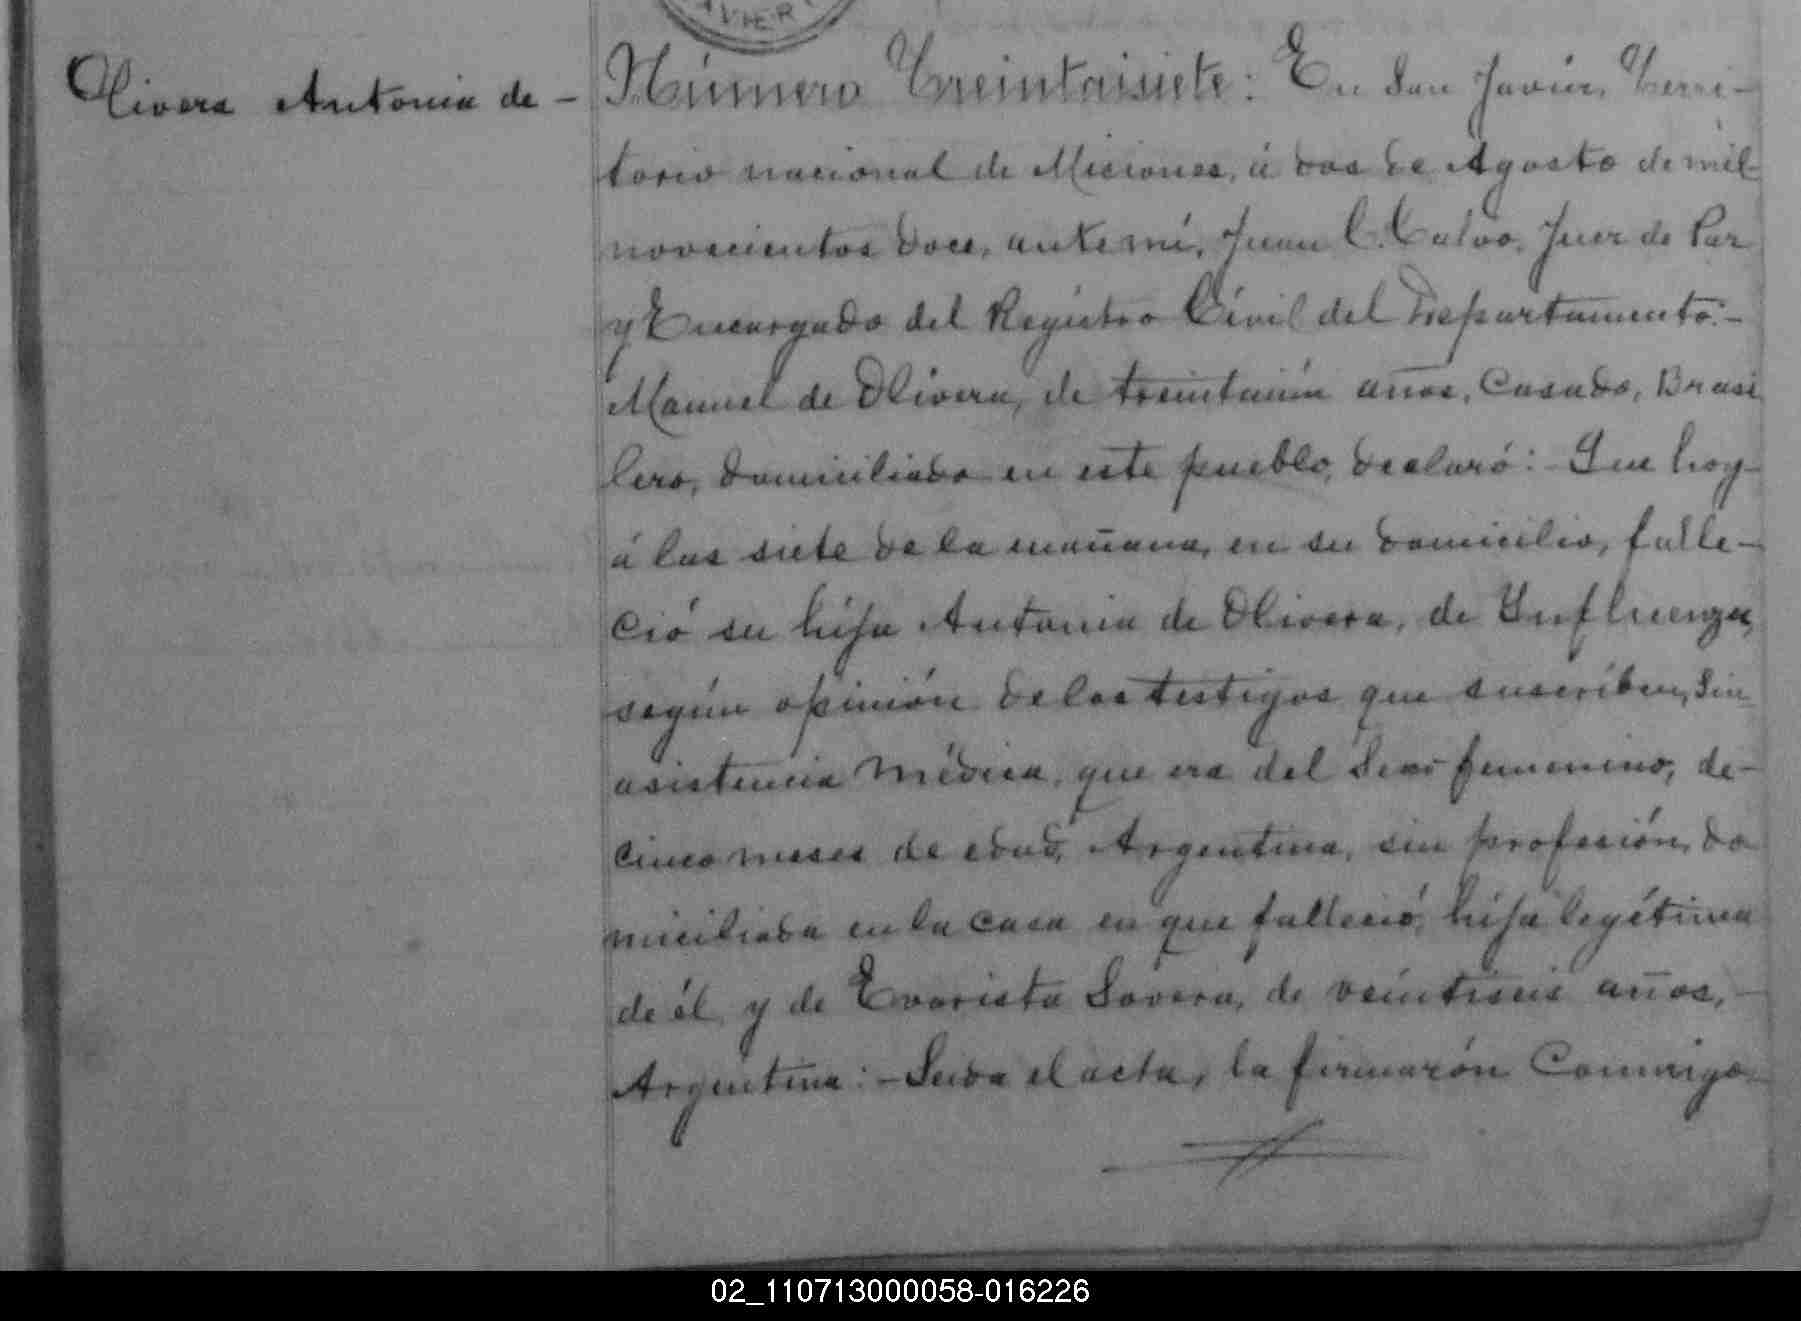 AVIER
Olivera Antonia de -
Número Treintaisiete: En San Javier, Terri-
torio nacional de Misiones, á dos de Agosto de mil
novecientos doce, ante mí, Juan C. Calvo, Juez de Paz
y Encargado del Registro Civil del Departamento:-
Manuel de Olivera, de treintaiún años, Casado, Brasi
lero, domiciliado en este pueblo, declaró:- Que hoy-
á las siete de la mañana, en su domicilio, falle-
ció su hija Antonia de Olivera, de Influenza,
según opinión de los testigos que suscriben, sin
asistencia médica, que era del Sexo femenino, de-
cinco meses de edad, Argentina, sin profesión, do
miciliada en la casa en que falleció, hija legítima
de él y de Evarista Sovera, de veintiseis años, -
Argentina:- Leida el acta, la firmarón Conmigo-
02_110713000058-016226